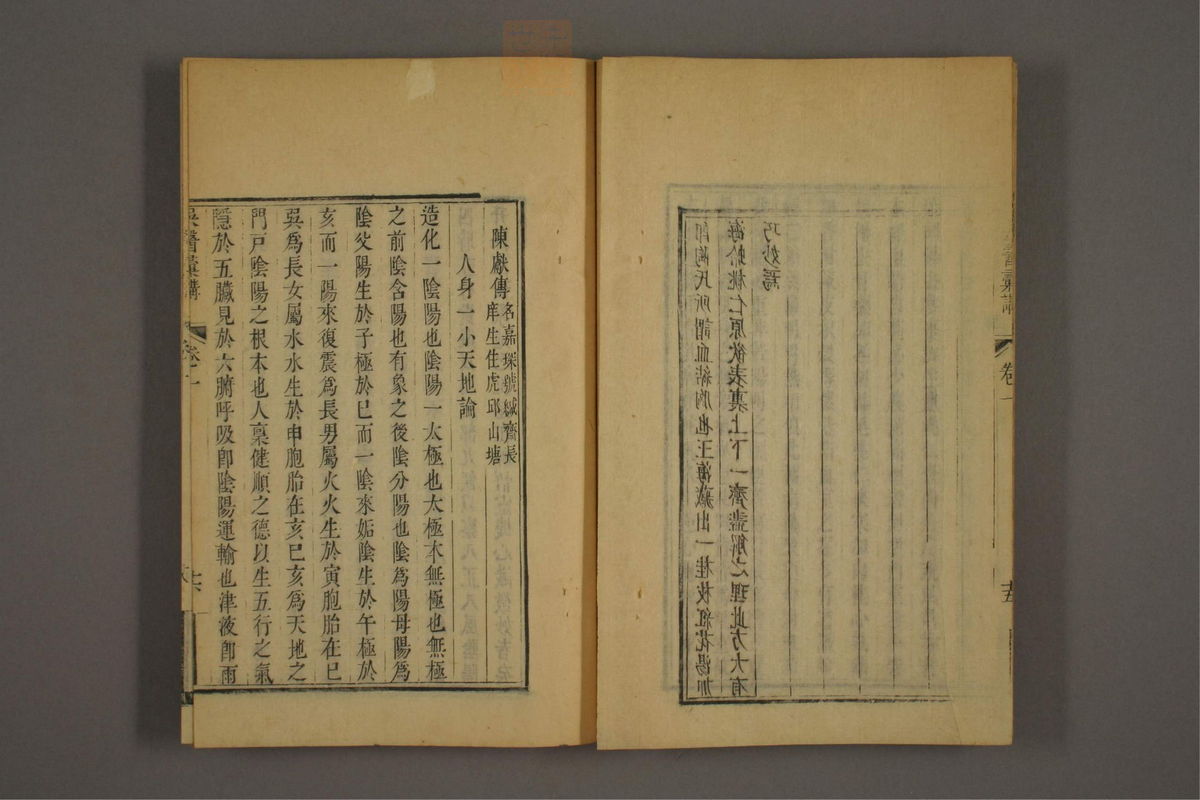 醫彙講 卷一 十五
卽陶氏所謂血結胸也王海藏出一桂枝紅花湯加
海蛤桃仁原欲表裏上下一齊盡解之理此方大有
巧妙焉
陳獻傳
名嘉琛號緘齋長
庠生住虎邱山塘
人身一小天地論
造化一陰陽也陰陽一太極也太極本無極也無極
之前陰含陽也有象之後陰分陽也陰爲陽母陽爲
陰父陽生於子極於巳而一陰來姤陰生於午極於
亥而一陽來復震爲長男屬火火生於寅胞胎在巳
巽爲長女屬水水生於申胞胎在亥巳亥爲天地之
門戸陰陽之根本也人稟健順之德以生五行之氣
隱於五臟見於六腑呼吸卽陰陽運輸也津液卽雨
吳醫彙講 卷一 十六